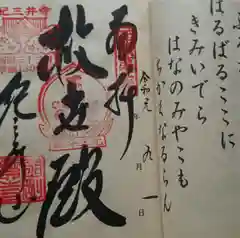 はるばるここに
きみいでら
はなのみやこも
ちかくなるらん
奉拝
令和元年九月一日
救世殿
紀三井寺